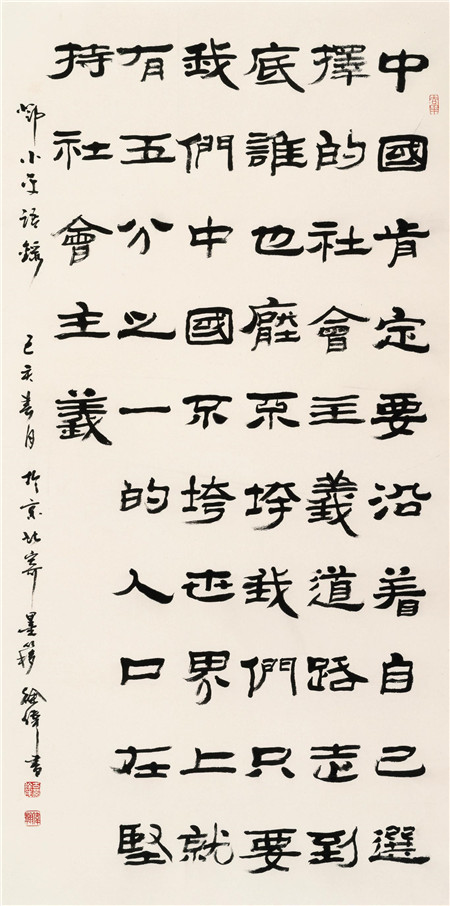 中國肯定要沿着自己選
擇的社會主義道路走到
底誰也壓不垮我們只要
我們中國不垮世界上就
有五分之一的人口在堅
持社會主義
鄧小平語錄 己亥春月於京北寄墨簃 書